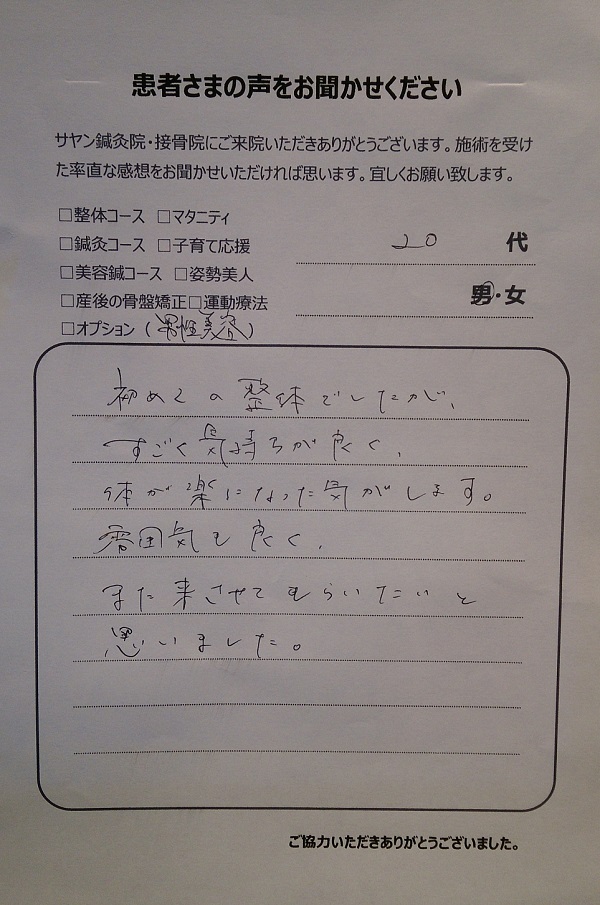 患者さまの声をお聞かせください
サヤン鍼灸院・接骨院にご来院いただきありがとうございます。施術を受け
た率直な感想をお聞かせいただければ思います。宜しくお願い致します。
□整体コース □マタニティ
□鍼灸コース □子育て応援
20 代
□美容鍼コース □姿勢美人
□産後の骨盤矯正□運動療法
男・女
□オプション (男性美容)
初めての整体でしたが、
すごく気持ちが良く、
体が楽になった気がします。
雰囲気も良く、
また来させてもらいたいと
思いました。
ご協力いただきありがとうございました。